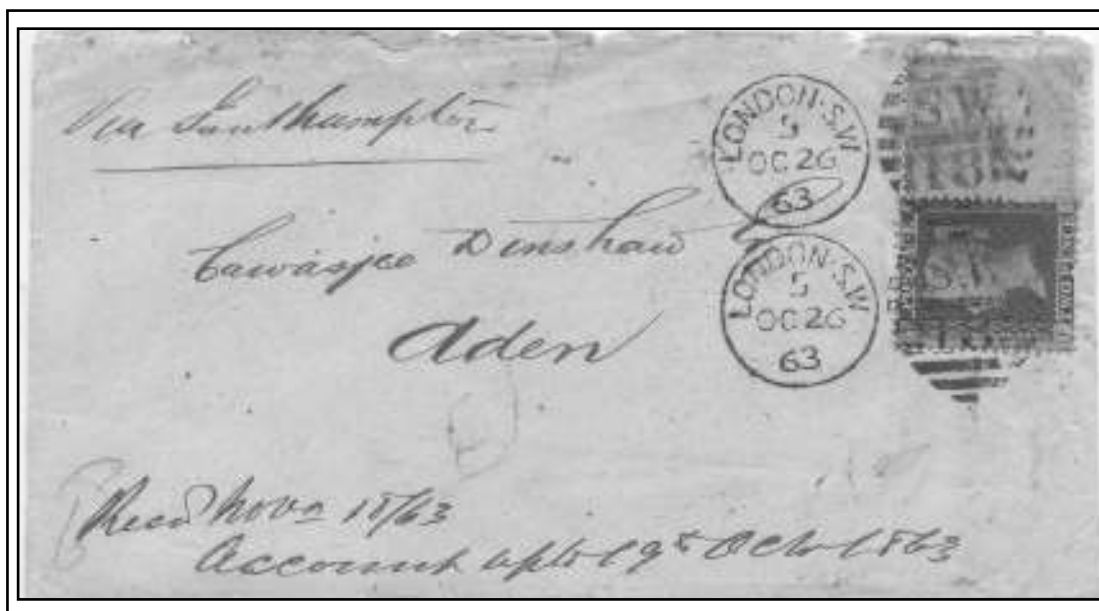 Via Southampton
LONDON·S.W
5
OC 26
63
S.W
Cawasjee Dinshaw
Aden
LONDON·S.W
5
OC 26
63
Recd Novr 18/63
Account upto 19th Octr 1863